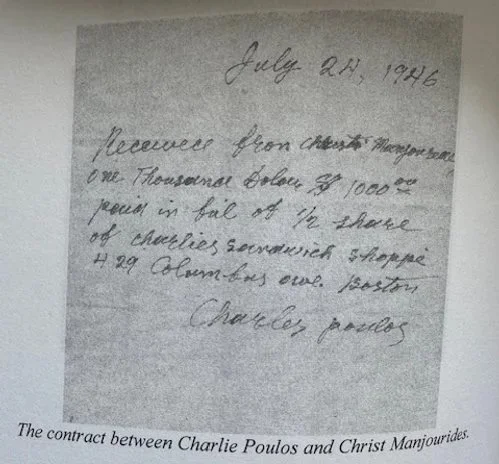 July 24, 1946
Receivece from Christ Manjourides
one Thousand Dolar $ 1000 00
paid in ful of 1/2 share
of charlies sandwich shoppe
429 Columbus ave. Boston
Charles poulos
The contract between Charlie Poulos and Christ Manjourides.